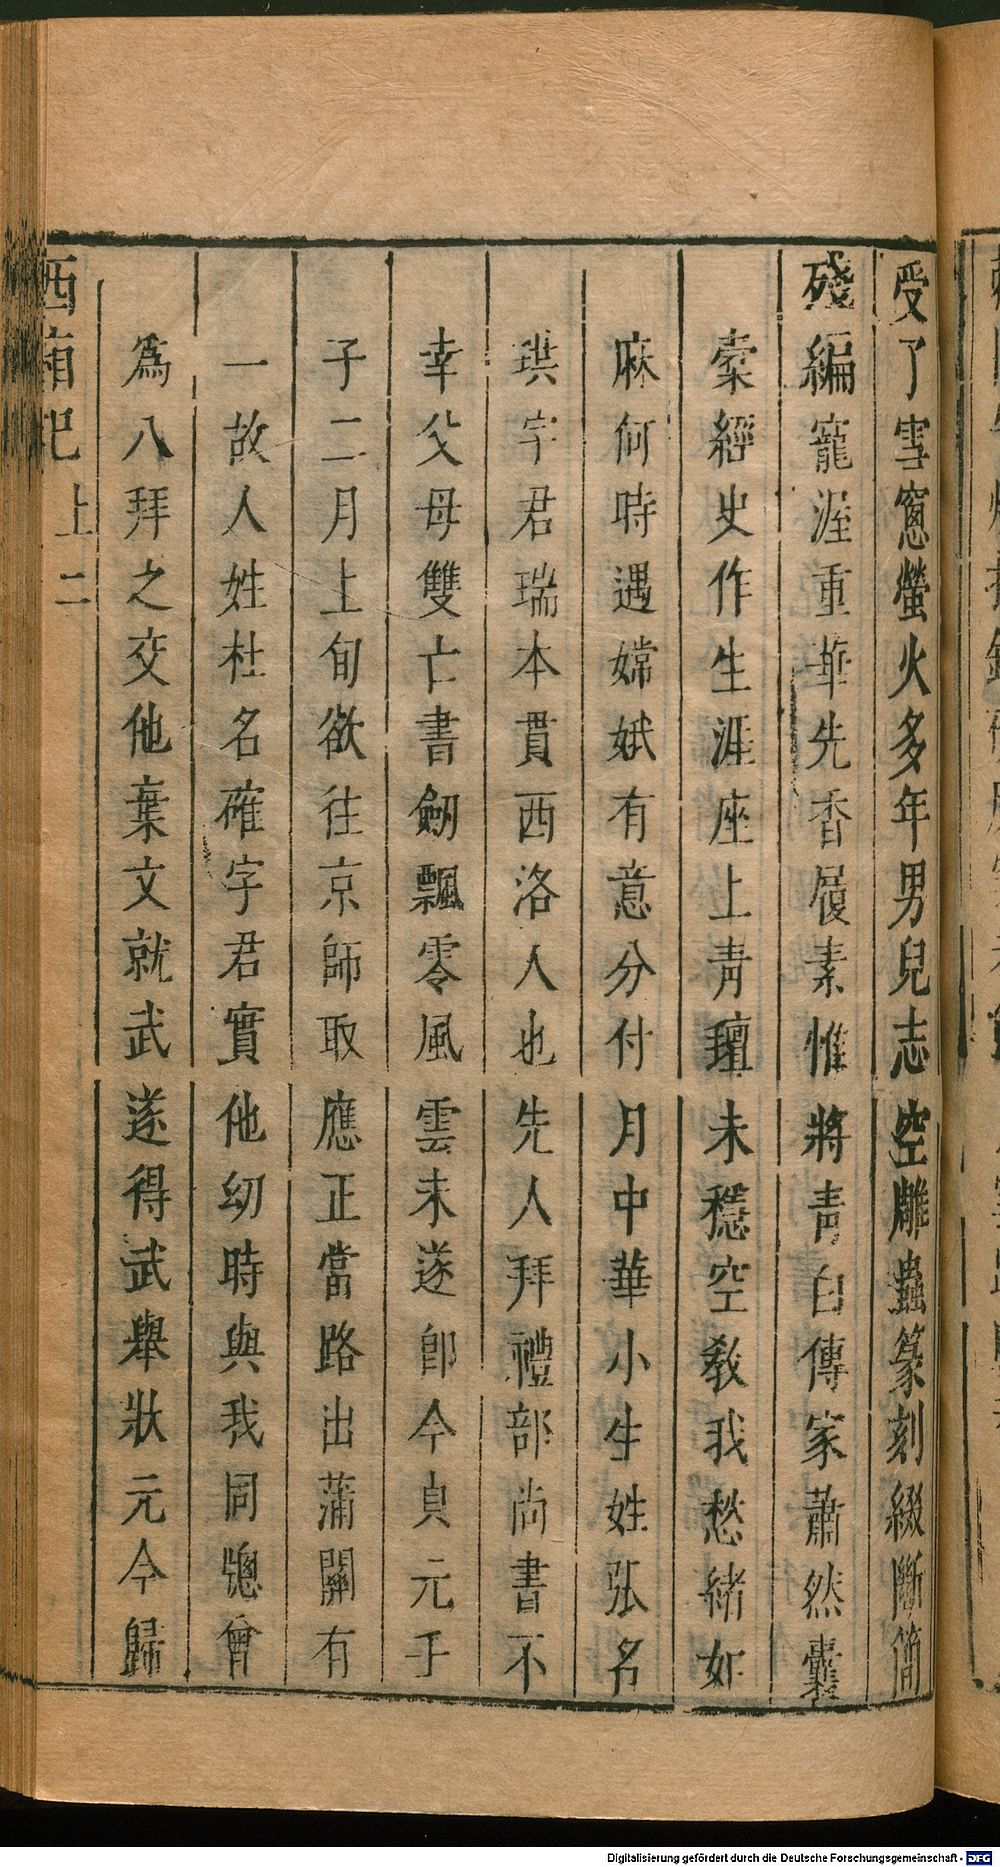 受了雪窻螢火多年男兒志空雕蟲篆刻綴斷簡
殘編寵渥重華先香履素惟將青白傳家蕭然囊
橐經史作生涯座上青氊未穩空教我愁緒如
麻何時遇嫦娥有意分付月中華小生姓張名
珙字君瑞本貫西洛人也先人拜禮部尚書不
幸父母雙亡書劒飄零風雲未遂即今貞元于
子二月上旬欲往京師取應正當路出蒲關有
一故人姓杜名確字君實他幼時與我同牕曾
為八拜之交他棄文就武遂得武舉狀元今歸
西廂記 上 二
Digitalisierung gefördert durch die Deutsche Forschungsgemeinschaft - DFG